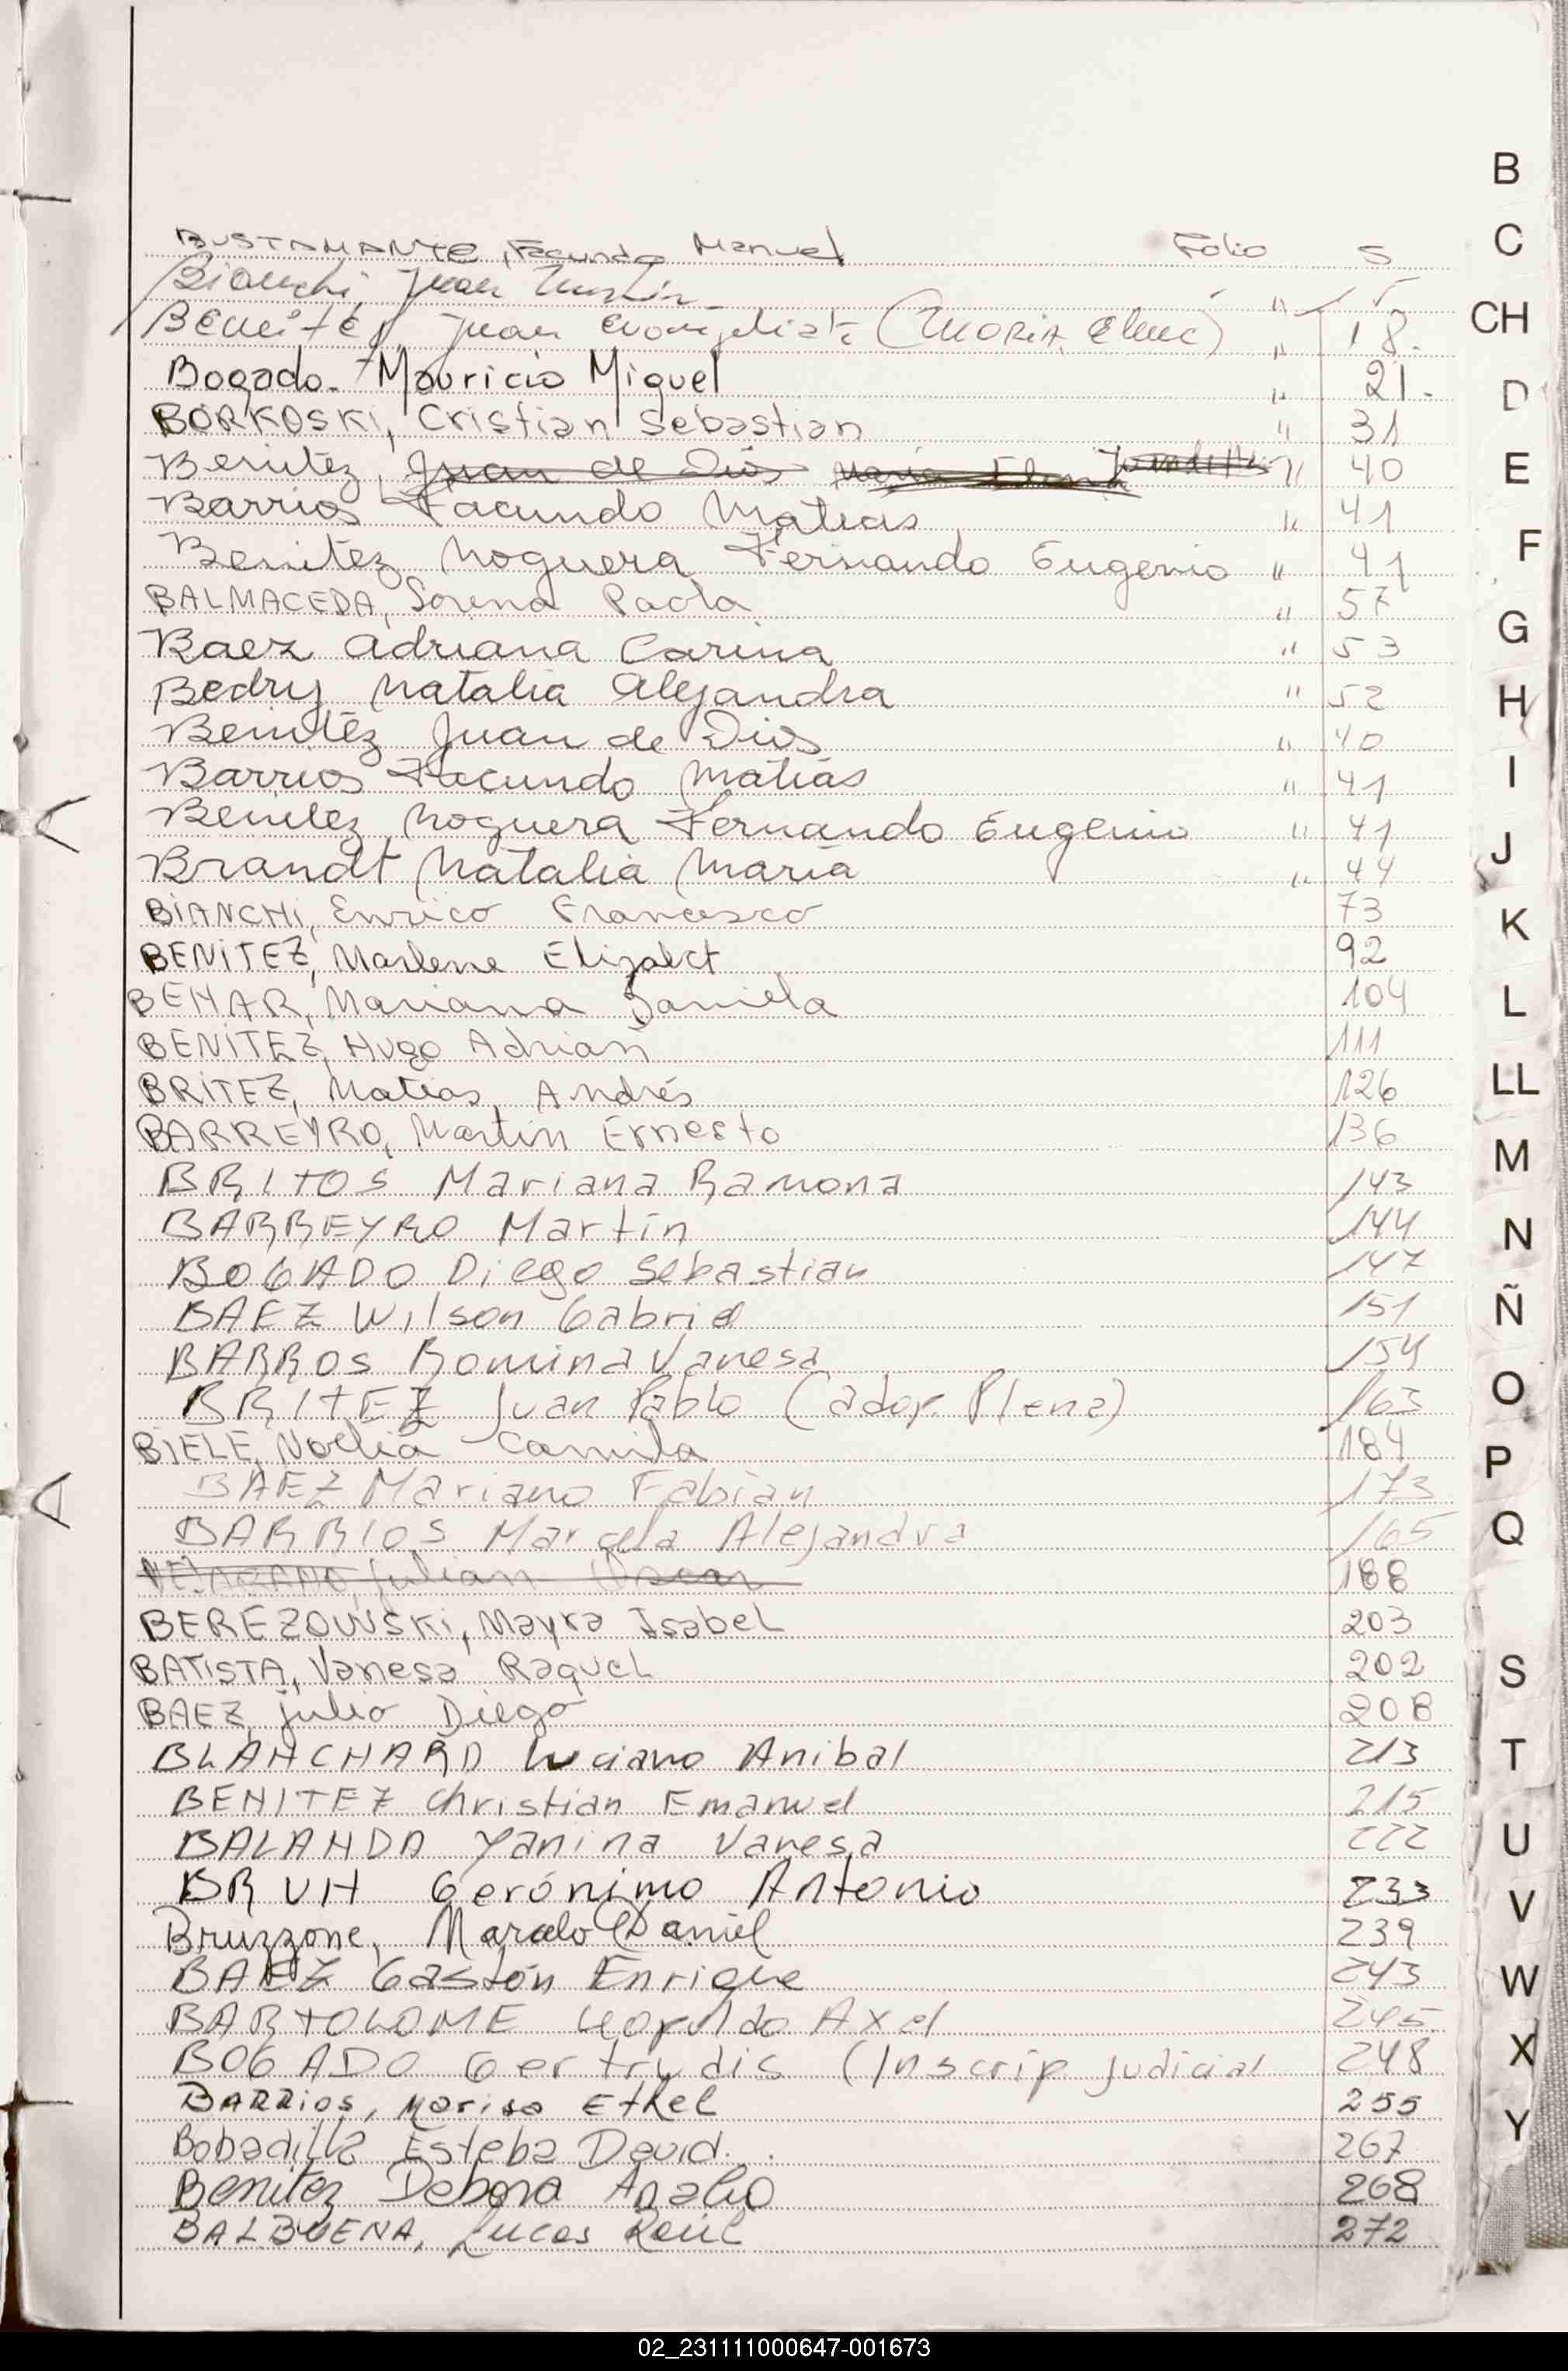 BUSTAMANTE, Facundo Manuel Folio 5
Bianchi, Juan " 15
Benitez, Juan Evangelista " 18.
Bogado. Mauricio Miguel " 21.
BORKOSKI, Cristian Sebastian " 31
Benitez, Juan de Dios Maria Elena " 40
Barrios Facundo Matias " 41
Benitez Noguera Fernando Eugenio " 41
BALMACEDA, Sorena Paola " 57
Baez Adriana Carina " 53
Bedry Natalia Alejandra " 52
Benitez Juan de Dios " 40
Barrios Facundo Matias " 41
Benitez Noguera Fernando Eugenio " 41
Brandt Natalia Maria " 44
BIANCHI, Enrico Francesco 73
BENITEZ, Marlene Elizabet 92
BEHAR, Mariana Daniela 104
BENITEZ, Hugo Adrian 111
BRITEZ, Matias Andrés 126
BARREYRO, Martin Ernesto 136
BRITOS Mariana Ramona 143
BARREYRO Martin 144
BOGADO Diego Sebastian 147
BAEZ Wilson Gabriel 151
BARROS Romina Vanesa 154
BRITEZ Juan Pablo (adop. Plena) 163
BIELE, Noelia Camila 184
BAEZ Mariano Fabian 173
BARRIOS Marcela Alejandra 165
Julian Oscar 188
BEREZOWSKI, Mayra Isabel 203
BATISTA, Vanesa Raquel 202
BAEZ, Julio Diego 208
BLANCHARD Luciano Anibal 213
BENITEZ Christian Emanuel 215
BALANDA Yanina Vanesa 222
BRUH Gerónimo Antonio 233
Bruzzone, Marcelo Daniel 239
BAEZ Gastón Enrique 243
BARTOLOME Leopoldo Axel 245
BOGADO Gertrudis (Inscrip Judicial 248
BARRIOS, Marisa Ethel 255
Bobadilla Esteba David. 267
Benitez Debora Analia 268
BALBUENA, Lucas Raúl 272
B
C
CH
D
E
F
G
H
I
J
K
L
LL
M
N
Ñ
O
P
Q
S
T
U
V
W
X
Y
02_231111000647-001673